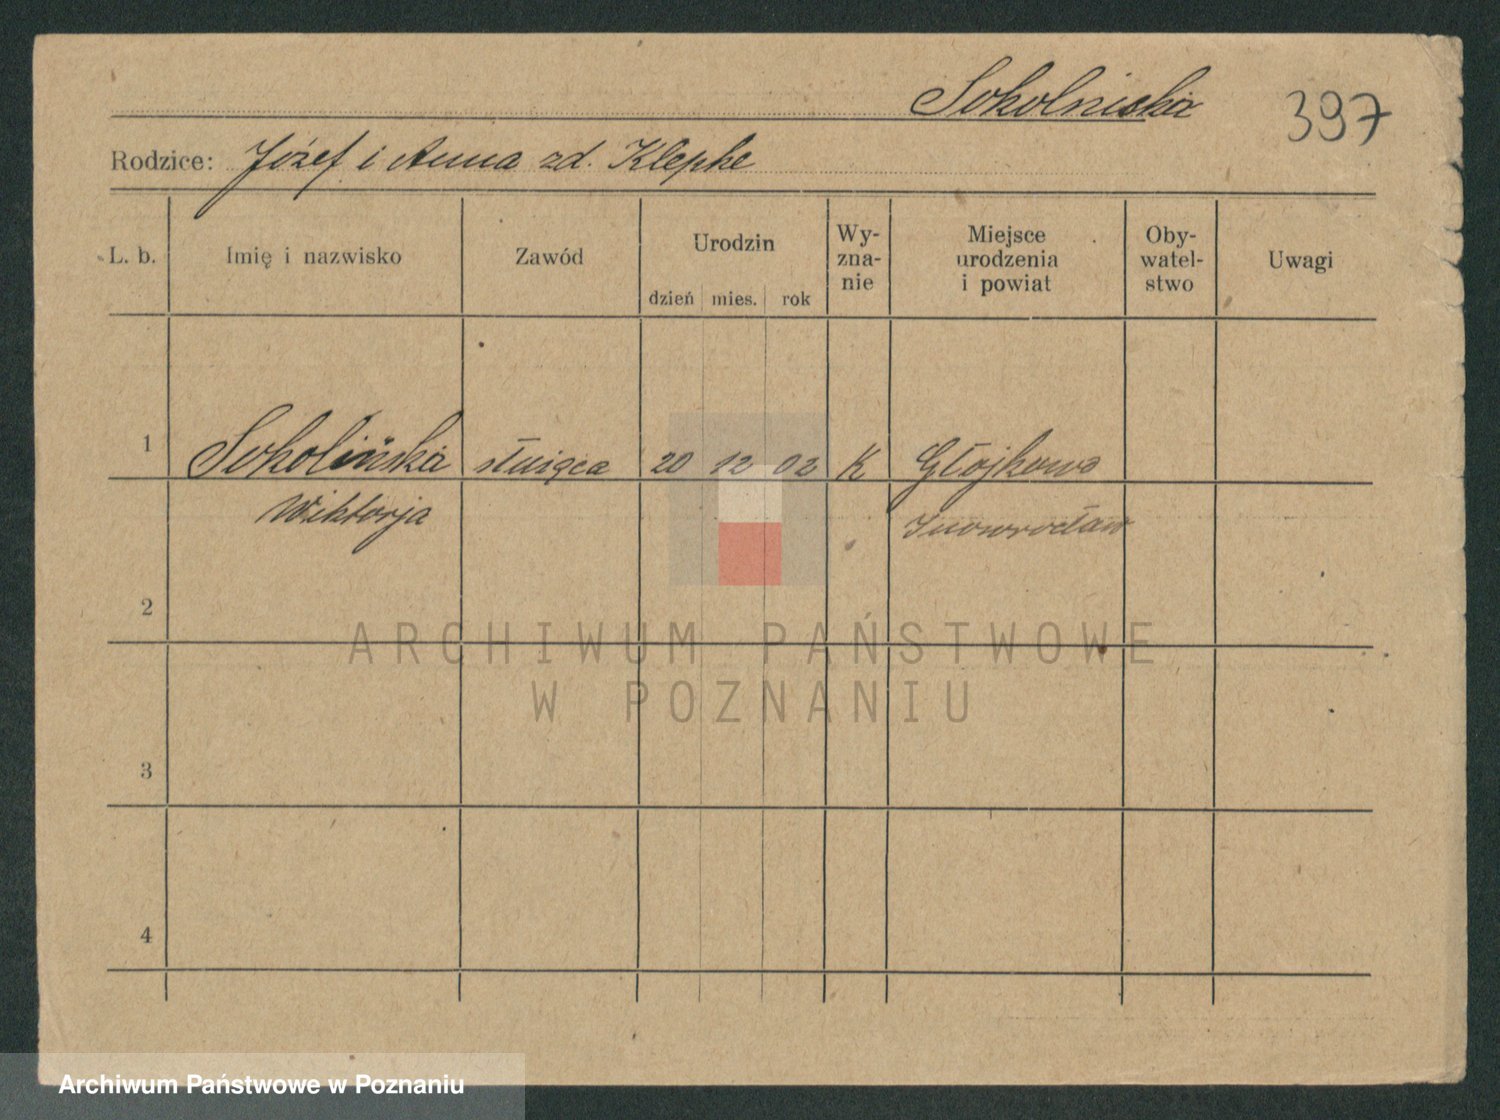 Sokolniska
397
Rodzice: Józef i Anna zd. Klephe
L. b.
Imię i nazwisko
Zawód
Urodzin
dzień mies. rok
Wy-
zna-
nie
Miejsce
urodzenia
i powiat
Oby-
watel-
stwo
Uwagi
1 Sokolińska służąca 20 12 02 K Głojkowo
Wiktorja Inowrocław
2
3
4
ARCHIWUM PAŃSTWOWE
W POZNANIU
Archiwum Państwowe w Poznaniu